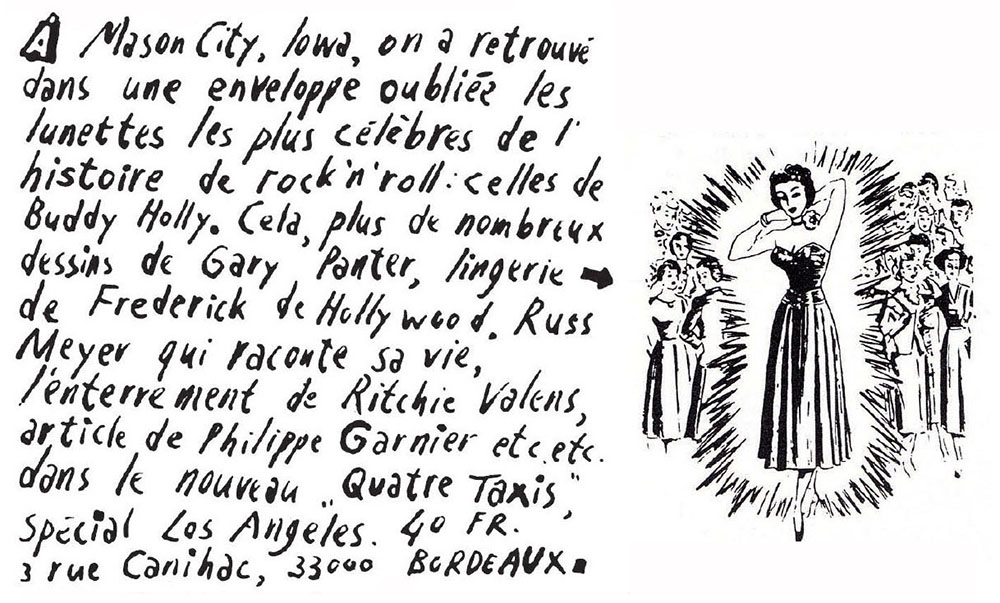 À Mason City, Iowa, on a retrouvé
dans une enveloppe oubliée les
lunettes les plus célèbres de l'
histoire de rock'n'roll: celles de
Buddy Holly. Cela, plus de nombreux
dessins de Gary Panter, lingerie ➡
de Frederick de Hollywood, Russ
Meyer qui raconte sa vie,
l'enterrement de Ritchie Valens,
article de Philippe Garnier etc. etc.
dans le nouveau "Quatre Taxis",
spécial Los Angeles. 40 FR.
3 rue Canihac, 33000 BORDEAUX.